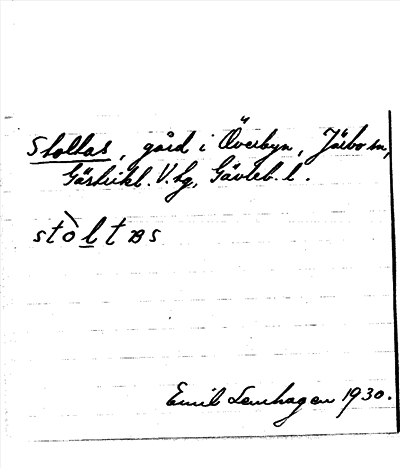 Stoltas, gård i Överbyn, Järbo sn,
Gästrikl. V. tg, Gävleb. l.
stòltas
Emil Lenhagen 1930.